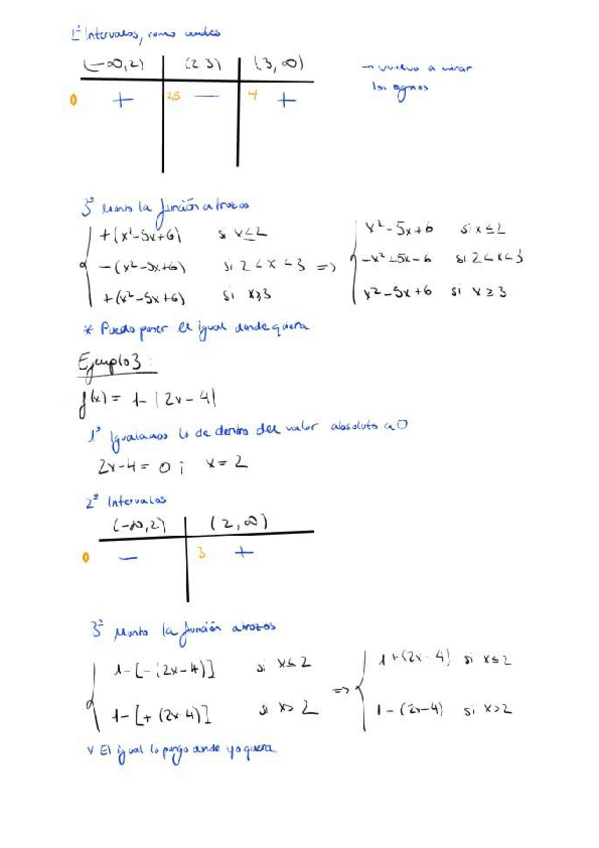 1º Intervalos, como antes
(-∞,2) (2,3) (3,∞) → vuelvo a mirar
0 + 2,5 — 4 + los signos
3º Monto la función a trozos
+(x²-5x+6) si x≤2
-(x²-5x+6) si 2<x<3 =>
+(x²-5x+6) si x≥3
x²-5x+6 si x≤2
-x²+5x-6 si 2<x<3
x²-5x+6 si x≥3
* Puedo poner el igual donde quiera
Ejemplo 3:
f(x) = 1-|2x-4|
1º Igualamos lo de dentro del valor absoluto a 0
2x-4=0 ; x=2
2º Intervalos
(-∞,2) (2,∞)
0 — 3 +
3º Monto la función a trozos
1-[-(2x-4)] si x≤2
1-[+(2x-4)] si x>2 =>
1+(2x-4) si x≤2
1-(2x-4) si x>2
El igual lo pongo donde yo quiera